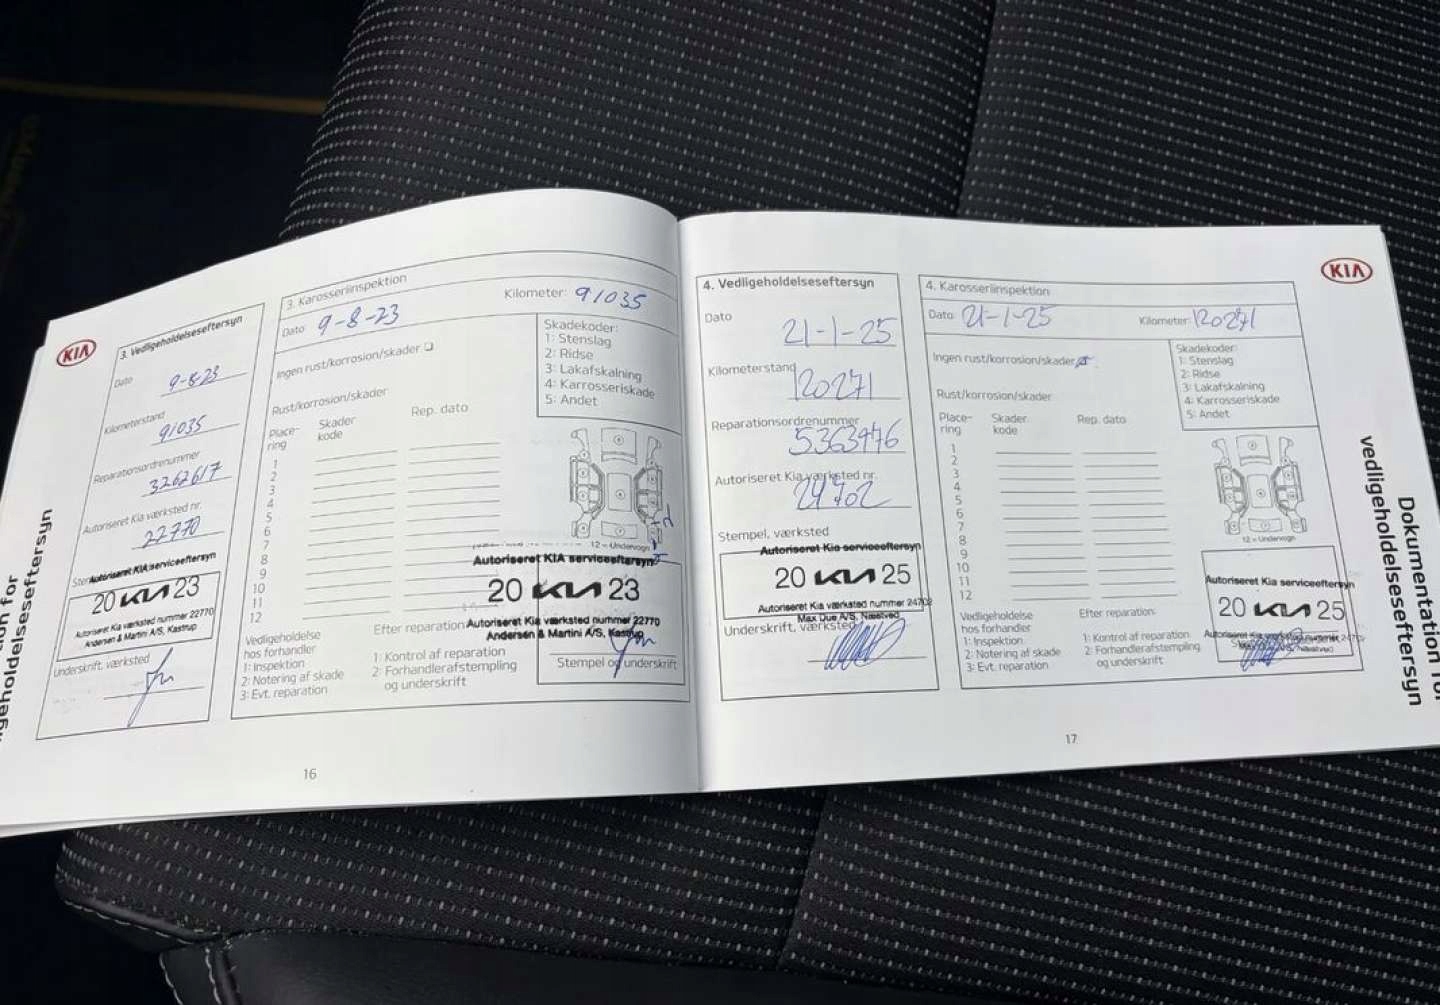 KIA
3. Vedligeholdelseseftersyn
Dato 9-8-23
Kilometerstand 91035
Reparationsordrenummer 3262617
Autoriseret Kia værksted nr. 22770
Autoriseret KIA serviceeftersyn
20 KIA 23
Autoriseret Kia værksted nummer 22770
Andersen & Martini A/S, Kastrup
Underskrift, værksted
3. Karosseriinspektion
Dato 9-8-23 Kilometer: 91035
Ingen rust/korrosion/skader
Rust/korrosion/skader
Place-
ring
Skader
kode
Rep. dato
1
2
3
4
5
6
7
8
9
10
11
12
Skadekoder:
1: Stenslag
2: Ridse
3: Lakafskalning
4: Karrosseriskade
5: Andet
12 = Undervogn
Autoriseret KIA serviceeftersyn
20 KIA 23
Autoriseret Kia værksted nummer 22770
Andersen & Martini A/S, Kastrup
Stempel og underskrift
Vedligeholdelse
hos forhandler
1: Inspektion
2: Notering af skade
3: Evt. reparation
Efter reparation
1: Kontrol af reparation
2: Forhandlerafstempling
og underskrift
16
4. Vedligeholdelseseftersyn
Dato
21-1-25
Kilometerstand
120271
Reparationsordrenummer
5363446
Autoriseret Kia værksted nr.
24702
Stempel, værksted
Autoriseret Kia serviceeftersyn
20 KIA 25
Autoriseret Kia værksted nummer 24702
Max Due A/S, Næstved
Underskrift, værksted
KIA
4. Karosseriinspektion
Dato 21-1-25 Kilometer: 120271
Ingen rust/korrosion/skader
Rust/korrosion/skader
Place-
ring
Skader
kode
Rep. dato
1
2
3
4
5
6
7
8
9
10
11
12
Skadekoder:
1: Stenslag
2: Ridse
3: Lakafskalning
4: Karrosseriskade
5: Andet
12 = Undervogn
Autoriseret Kia serviceeftersyn
20 KIA 25
Autoriseret Kia værksted nummer 24702
Max Due A/S, Næstved
Vedligeholdelse
hos forhandler
1: Inspektion
2: Notering af skade
3: Evt. reparation
Efter reparation:
1: Kontrol af reparation
2: Forhandlerafstempling
og underskrift
17
Dokumentation for
vedligeholdelseseftersyn